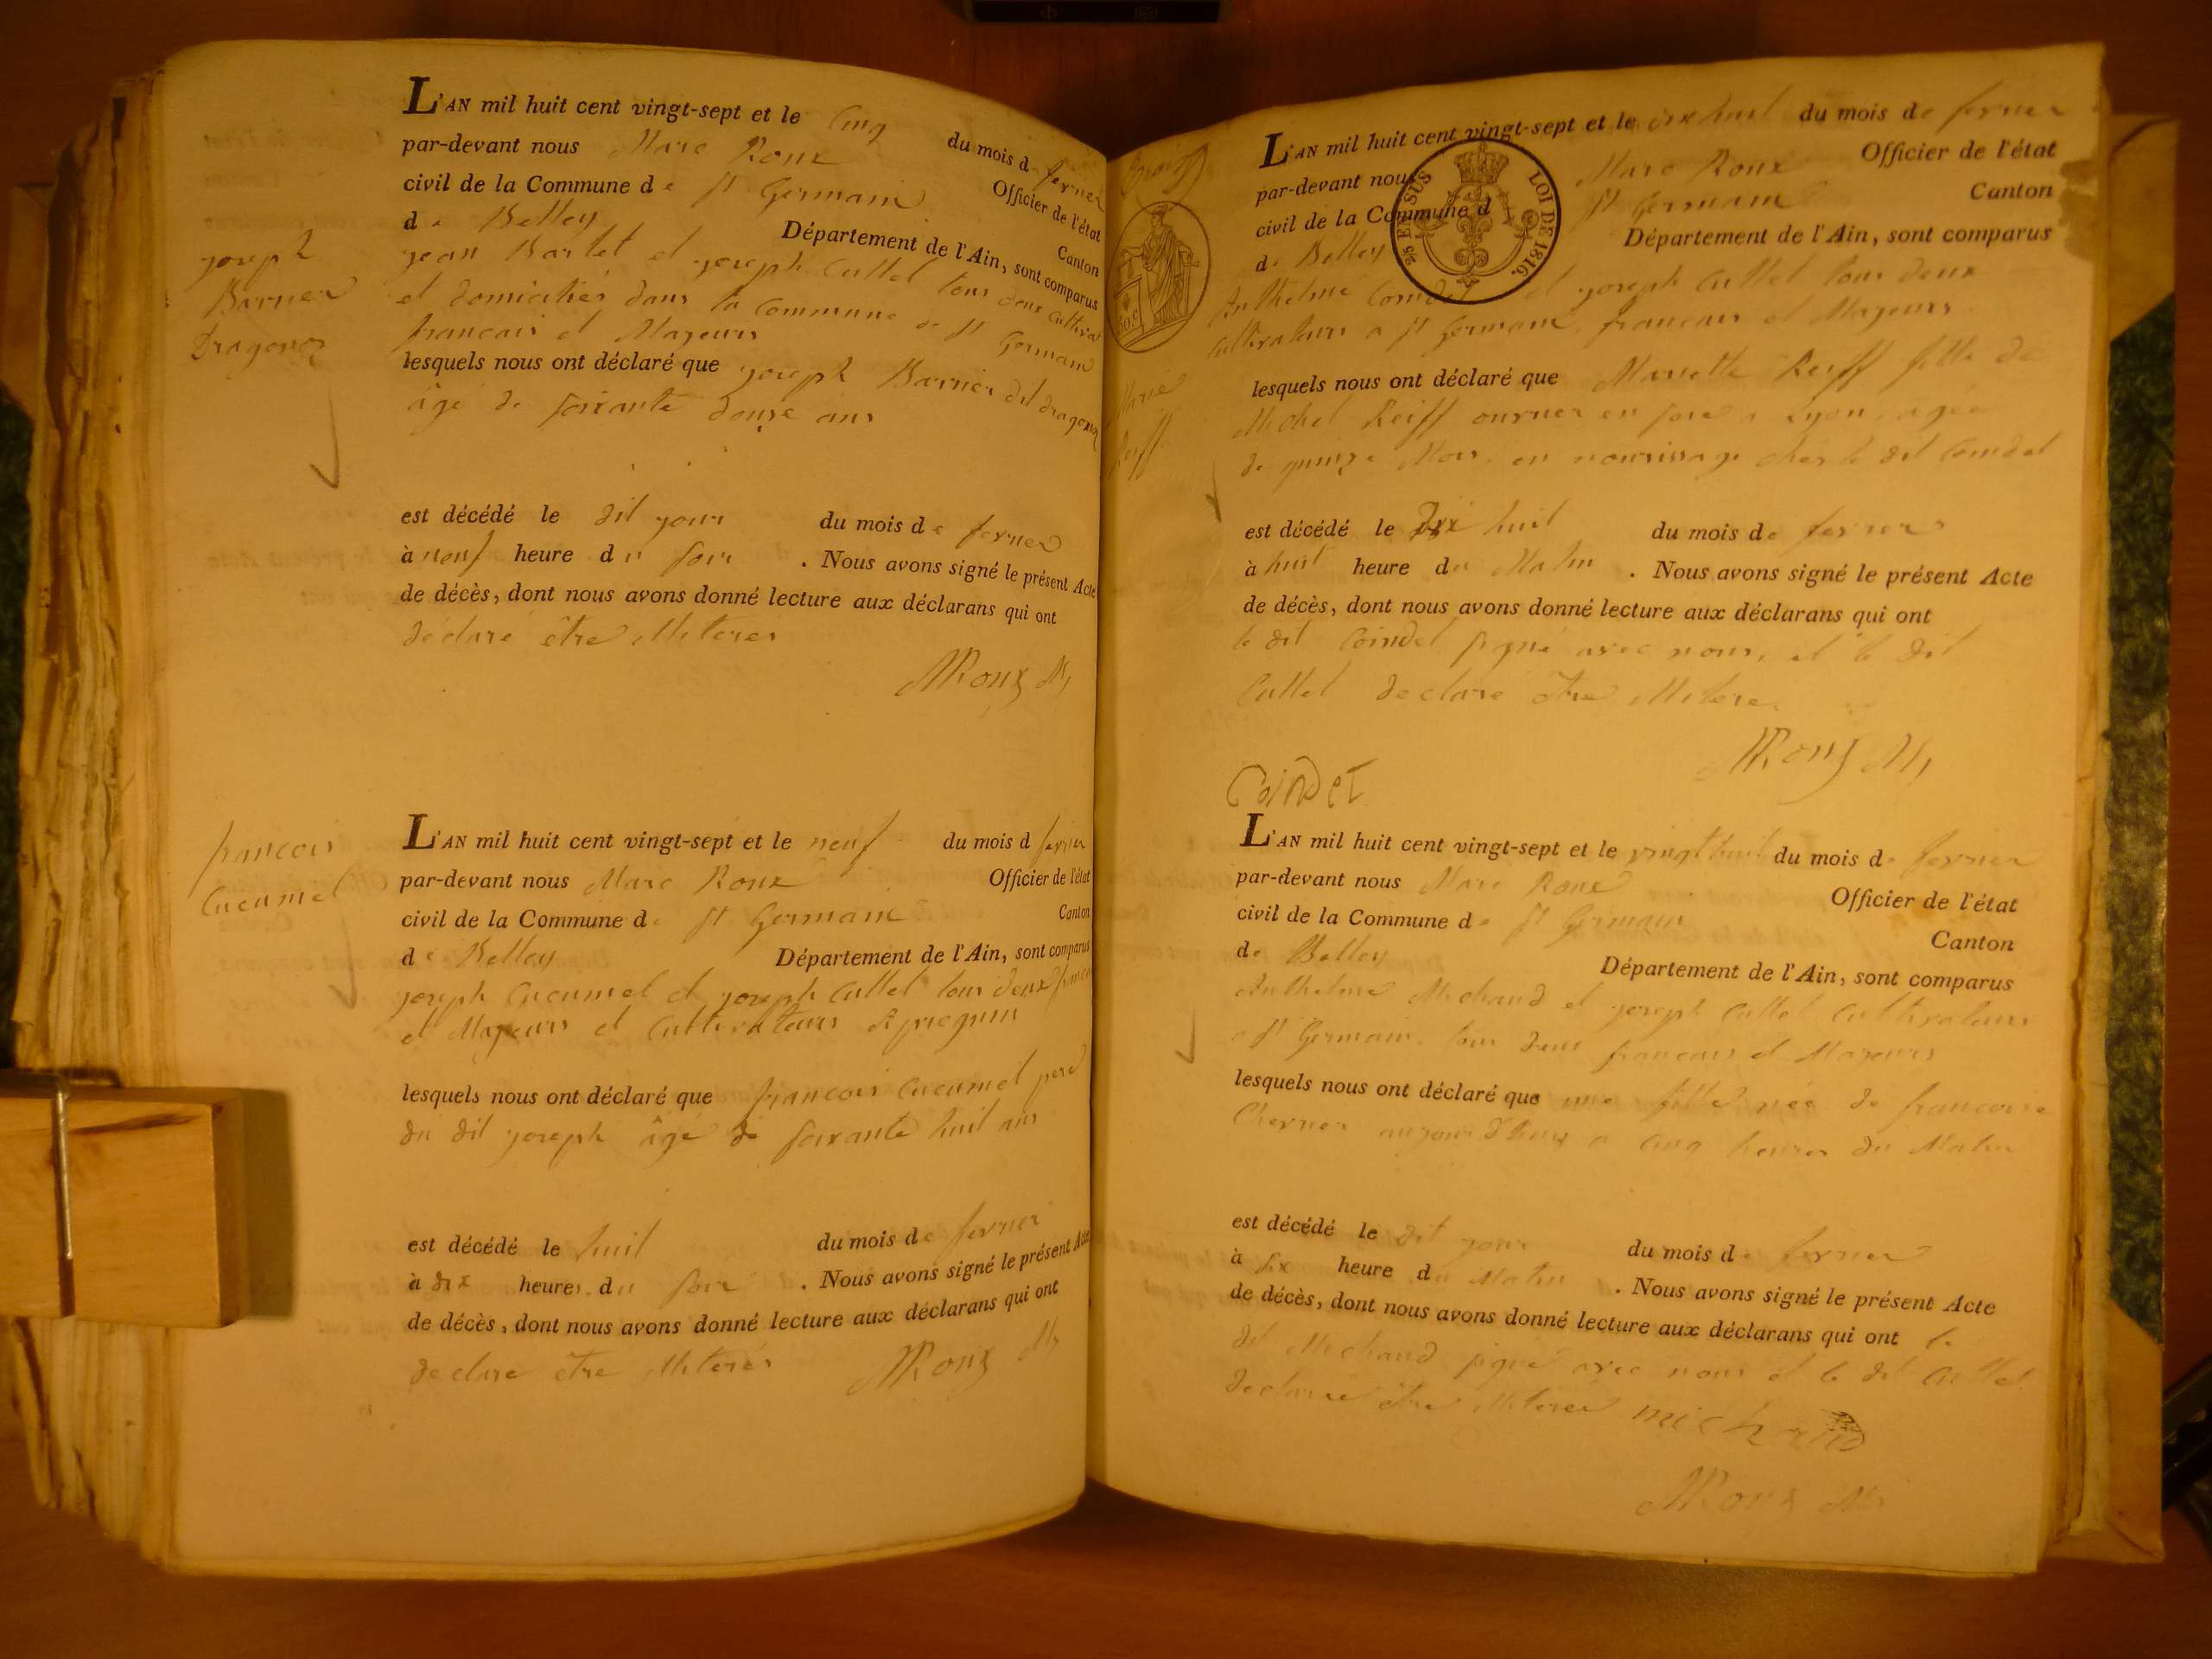 L'AN mil huit cent vingt-sept et le Cinq du mois de fevrier
par-devant nous Marc Roux Officier de l'état
civil de la Commune de St Germain Canton
de Belley Département de l'Ain, sont comparus
jean Bartet et joseph Cuttet tous deux
et domiciliés dans la Commune de St Germain
francais et Majeurs
lesquels nous ont déclaré que joseph Barnier dit dragonos
âgé de soixante douze ans
est décédé le dit jour du mois de fevrier
à neuf heure du soir . Nous avons signé le présent Acte
de décès, dont nous avons donné lecture aux déclarans qui ont
déclaré être illiteres
MRoux
joseph
Barnier
Dragonos
L'AN mil huit cent vingt-sept et le neuf du mois d fevrier
par-devant nous Marc Roux Officier de l'état
civil de la Commune de St Germain Canton
de Belley Département de l'Ain, sont comparus
joseph Cucumel et joseph Cuttet tous deux francais
et Majeurs et Cultivateurs
lesquels nous ont déclaré que francois Cucumel pere
du dit joseph âge de soixante huit ans
est décédé le huit du mois de fevrier
à dix heures du soir . Nous avons signé le présent Acte
de décès, dont nous avons donné lecture aux déclarans qui ont
declare être illiterés MRoux
francois
Cucumel
L'AN mil huit cent vingt-sept et le dix huit du mois de fevrier
par-devant nous Marc Roux Officier de l'état
civil de la Commune d St Germain Canton
de Belley Département de l'Ain, sont comparus
Anthelme Coindet et joseph Cuttet tous deux
cultivateurs a St Germain francais et Majeurs
lesquels nous ont déclaré que Mariette Reiff fille de
Michel Reiff ouvrier en soie a Lyon, agée
de quinze Mois, en nourissage chez le dit Coindet
est décédé le dix huit du mois de fevrier
à huit heure du Matin . Nous avons signé le présent Acte
de décès, dont nous avons donné lecture aux déclarans qui ont
le dit Coindet signé avec nous, et le dit
Cuttet declaré être illitere
MRoux
Coindet
Marie
Reiff
2/5 EN SUS
LOI DE 1816.
L'AN mil huit cent vingt-sept et le vingt huit du mois de fevrier
par-devant nous Marc Roux Officier de l'état
civil de la Commune de St Germain Canton
de Belley Département de l'Ain, sont comparus
Anthelme Michaud et joseph Cuttet Cultivateurs
a St Germain, tous deux francais et Majeurs
lesquels nous ont déclaré que une fille née de francoise
aujourdhuy a Cinq heures du Matin
est décédé le dit jour du mois de fevrier
à six heure du Matin . Nous avons signé le présent Acte
de décès, dont nous avons donné lecture aux déclarans qui ont le
dit Michaud signé avec nous et le dit Cuttet
declaré être illiteré michaud
MRoux